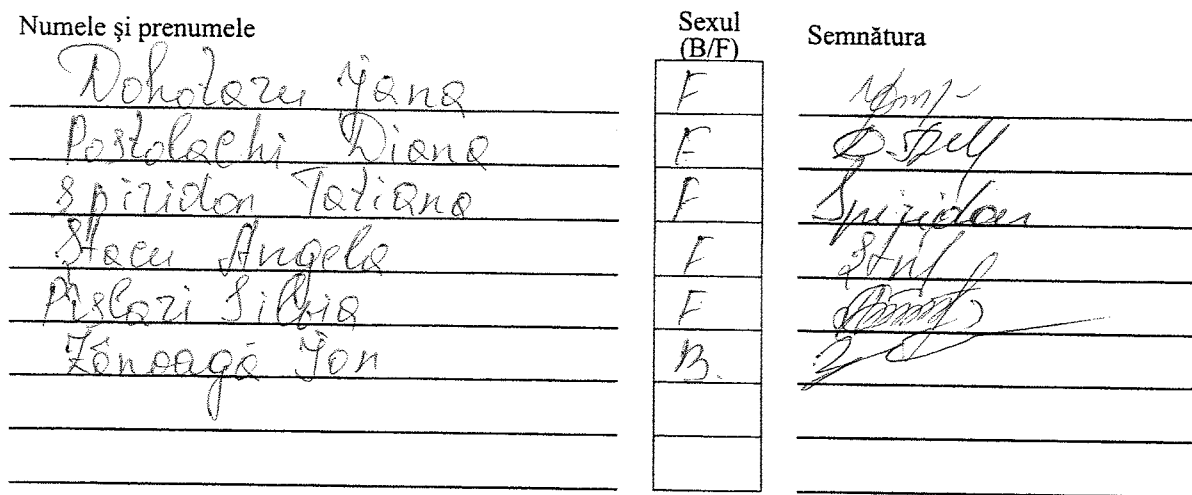 Numele şi prenumele Sexul (B/F) Semnătura
Dohotaru Iana F
Postolachi Diana F
Spiridon Tatiana F Spiridon
Stacu Angela F
Pîslari Silvia F
Zînoagă Ion B.